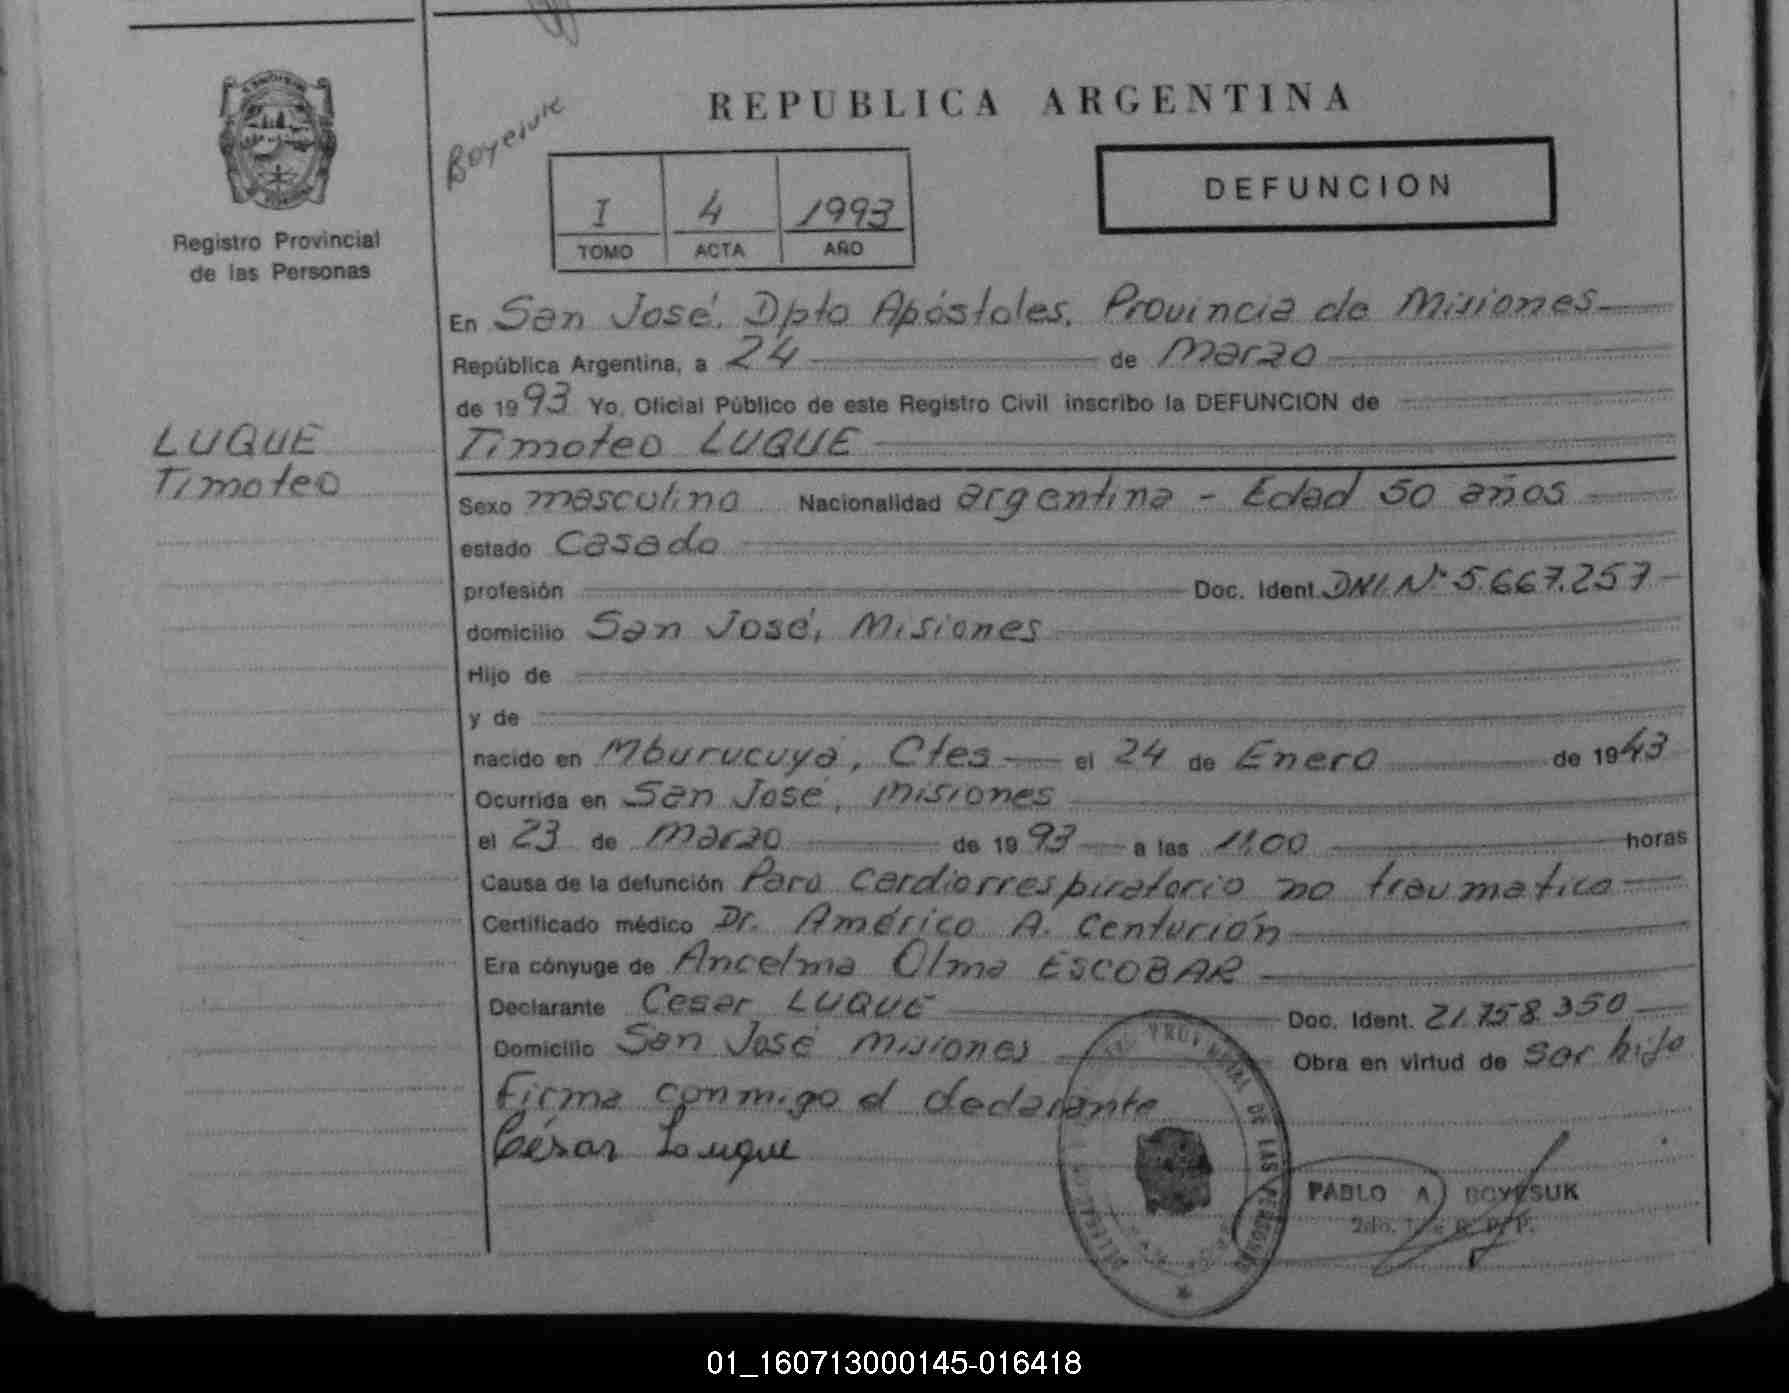 REPUBLICA ARGENTINA
Boyesuk
DEFUNCION
I 4 1993
TOMO ACTA AÑO
Registro Provincial
de las Personas
En San José, Dpto Apóstoles, Provincia de Misiones
República Argentina, a 24 de Marzo
de 1993 Yo, Oficial Público de este Registro Civil inscribo la DEFUNCION de
LUQUE
Timoteo
Timoteo LUQUE
Sexo masculino Nacionalidad argentina - Edad 50 años
estado Casado
profesión Doc. Ident. DNI. Nº 5.667.257
domicilio San José, Misiones
Hijo de
y de
nacido en Mburucuyá, Ctes el 24 de Enero de 1943
Ocurrida en San José, Misiones
el 23 de Marzo de 1993 a las 11.00 horas
Causa de la defunción Paro cardiorrespiratorio no traumatico
Certificado médico Dr. Américo A. Centurión
Era cónyuge de Ancelma Olma ESCOBAR
Declarante Cesar LUQUE Doc. Ident. 21.758.350
Domicilio San José Misiones Obra en virtud de ser hijo
Firma conmigo el declarante
César Luque
PROVINCIAL DE LAS PERSONAS
PABLO A. BOYESUK
01_160713000145-016418